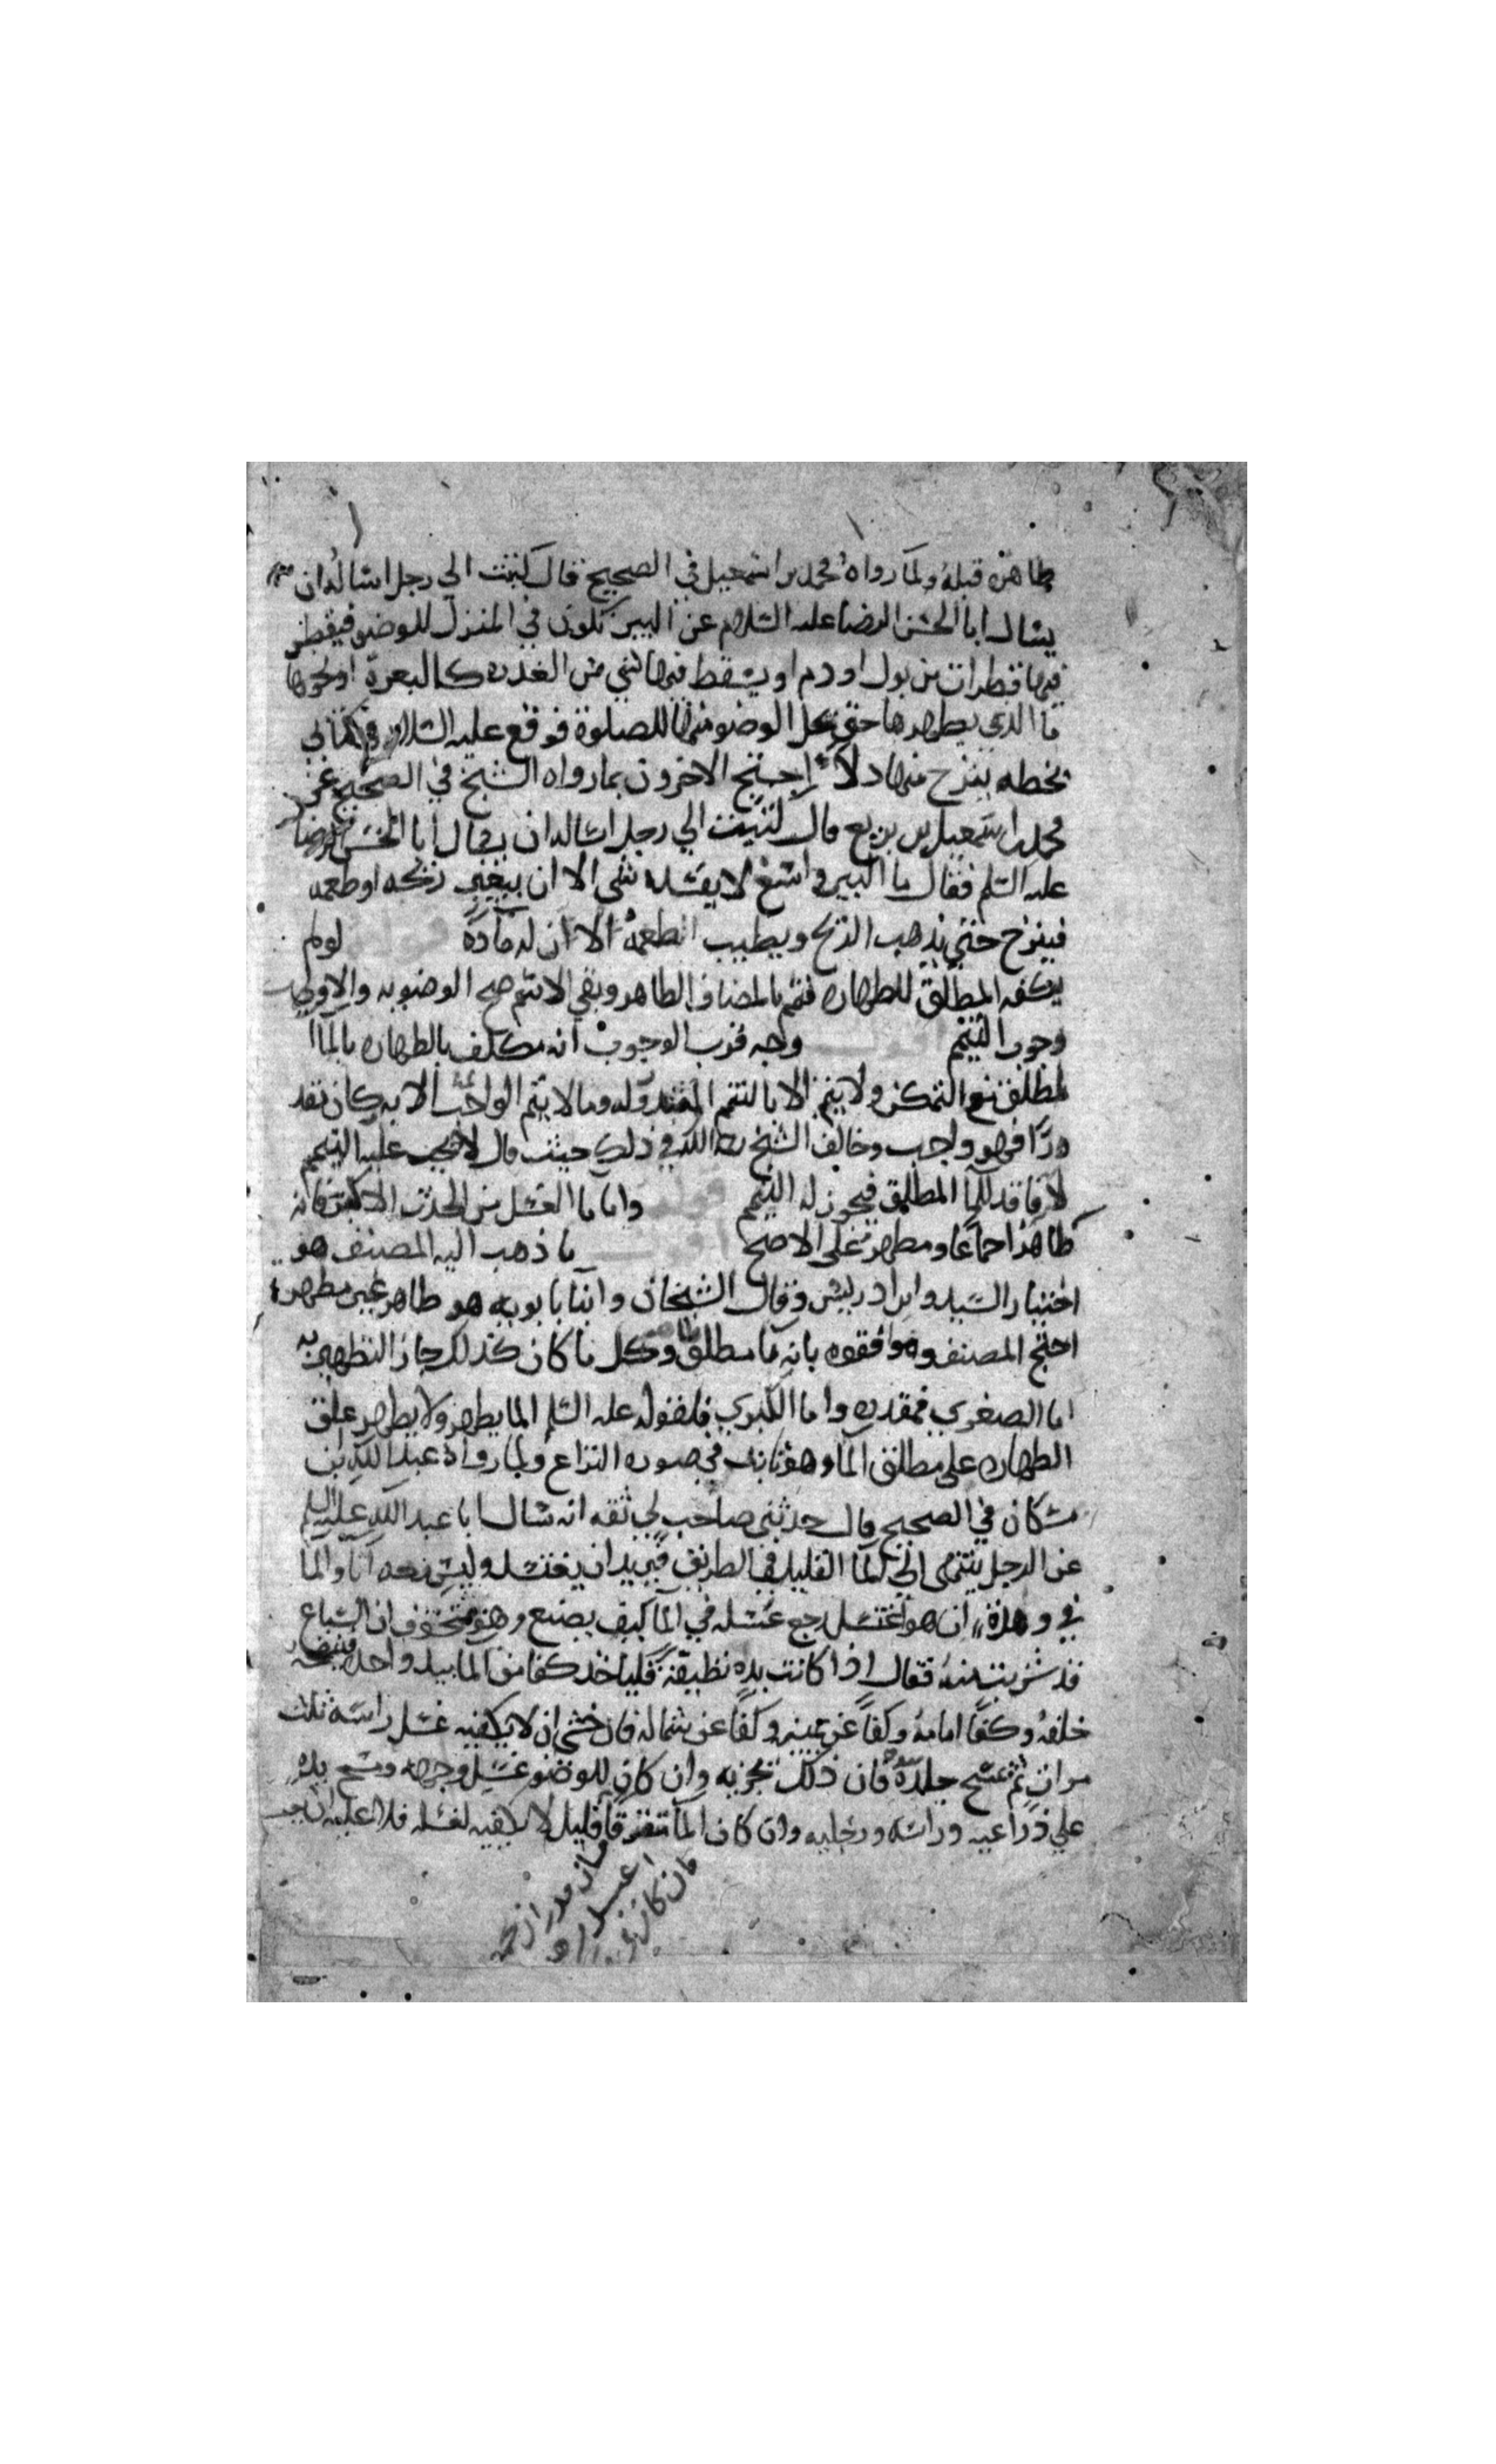 طاهرة قبله ولما رواه محمد بن اسمعيل في الصحيح قال كتبت الي رجل اساله ان
يسال ابا الحسن الرضا عليه السلام عن البير تكون في المنزل للوضو فيقطر
فيها قطرات من بول او دم او يسقط فيها شي من العذره كالبعرة او نحوها
ما الذي يطهرها حتى يحل الوضو منها للصلوة فوقع عليه السلام في كتابي
بخطه ينزح منها دلاء احتج الاخرون بما رواه الشيخ في الصحيح عن
محمد بن اسمعيل بن بزيع قال كتبت الي رجل اساله ان يسال ابا الحسن الرضا
عليه السلم فقال ما البير واسع لا يفسده شي الا ان يتغير ريحه او طعمه
فينزح حتي يذهب الريح ويطيب طعمه لان له مادة قوله لو لم
يكفه المطلق للطهاره فتمم بالمضاف الطاهر وبقي الاسم صح الوضو به والاقرب
وجوب التيمم اقول وجه قرب الوجوب انه مكلف بالطهاره بالما ا
لمطلق مع التمكن ولا يتم الا بالتتميم المقدور له وما لا يتم الواجب الا به وكان مقد
ورا فهو واجب وخالف الشيخ رحمه الله في ذلك حيث قال لا يجب عليه التتميم
لانه فاقد للما المطلق فيجوز له التيمم قوله واما ما الغسل من الحدث الاكبر فانه
طاهر اجماعا ومطهر علي الاصح اقول ما ذهب اليه المصنف هو
اختيار السيد وابن ادريس وقال الشيخان وابنا بابويه هو طاهر غير مطهر
احتج المصنف وموافقوه بانه ما مطلق طاهر وكل ما كان كذلك جاز التطهير به
اما الصغري فمقدره واما الكبري فلقوله عليه السلم الما يطهر ولا يطهر علق
الطهاره علي مطلق الما وهو ثابت في صوره النزاع ولما رواه عبد الله ابن
مسكان في الصحيح قال حدثني صاحب لي ثقه انه سال ابا عبد الله عليه السلم
عن الرجل ينتهي الي الما القليل في الطريق فيريد ان يغتسل وليس معه انا والما
في وهدة ان هو اغتسل رجع غسله في الما كيف يصنع وهو متخوف ان السباع
قد شربت منه فقال اذا كانت يده نظيفة فلياخذ كفا من الما بيد واحده فينضحه
خلفه وكفا امامه وكفا عن يمينه وكفا عن شماله فان خشي ان لا يكفيه غسل راسه ثلث
مرات ثم مسح جلده بيده فان ذلك يجزيه وان كان للوضو غسل وجهه ومسح يده
علي ذراعيه وراسه ورجليه وان كان الما متفرقا قليل لا يكفيه لغسله فلا عليه ان
فان كان في